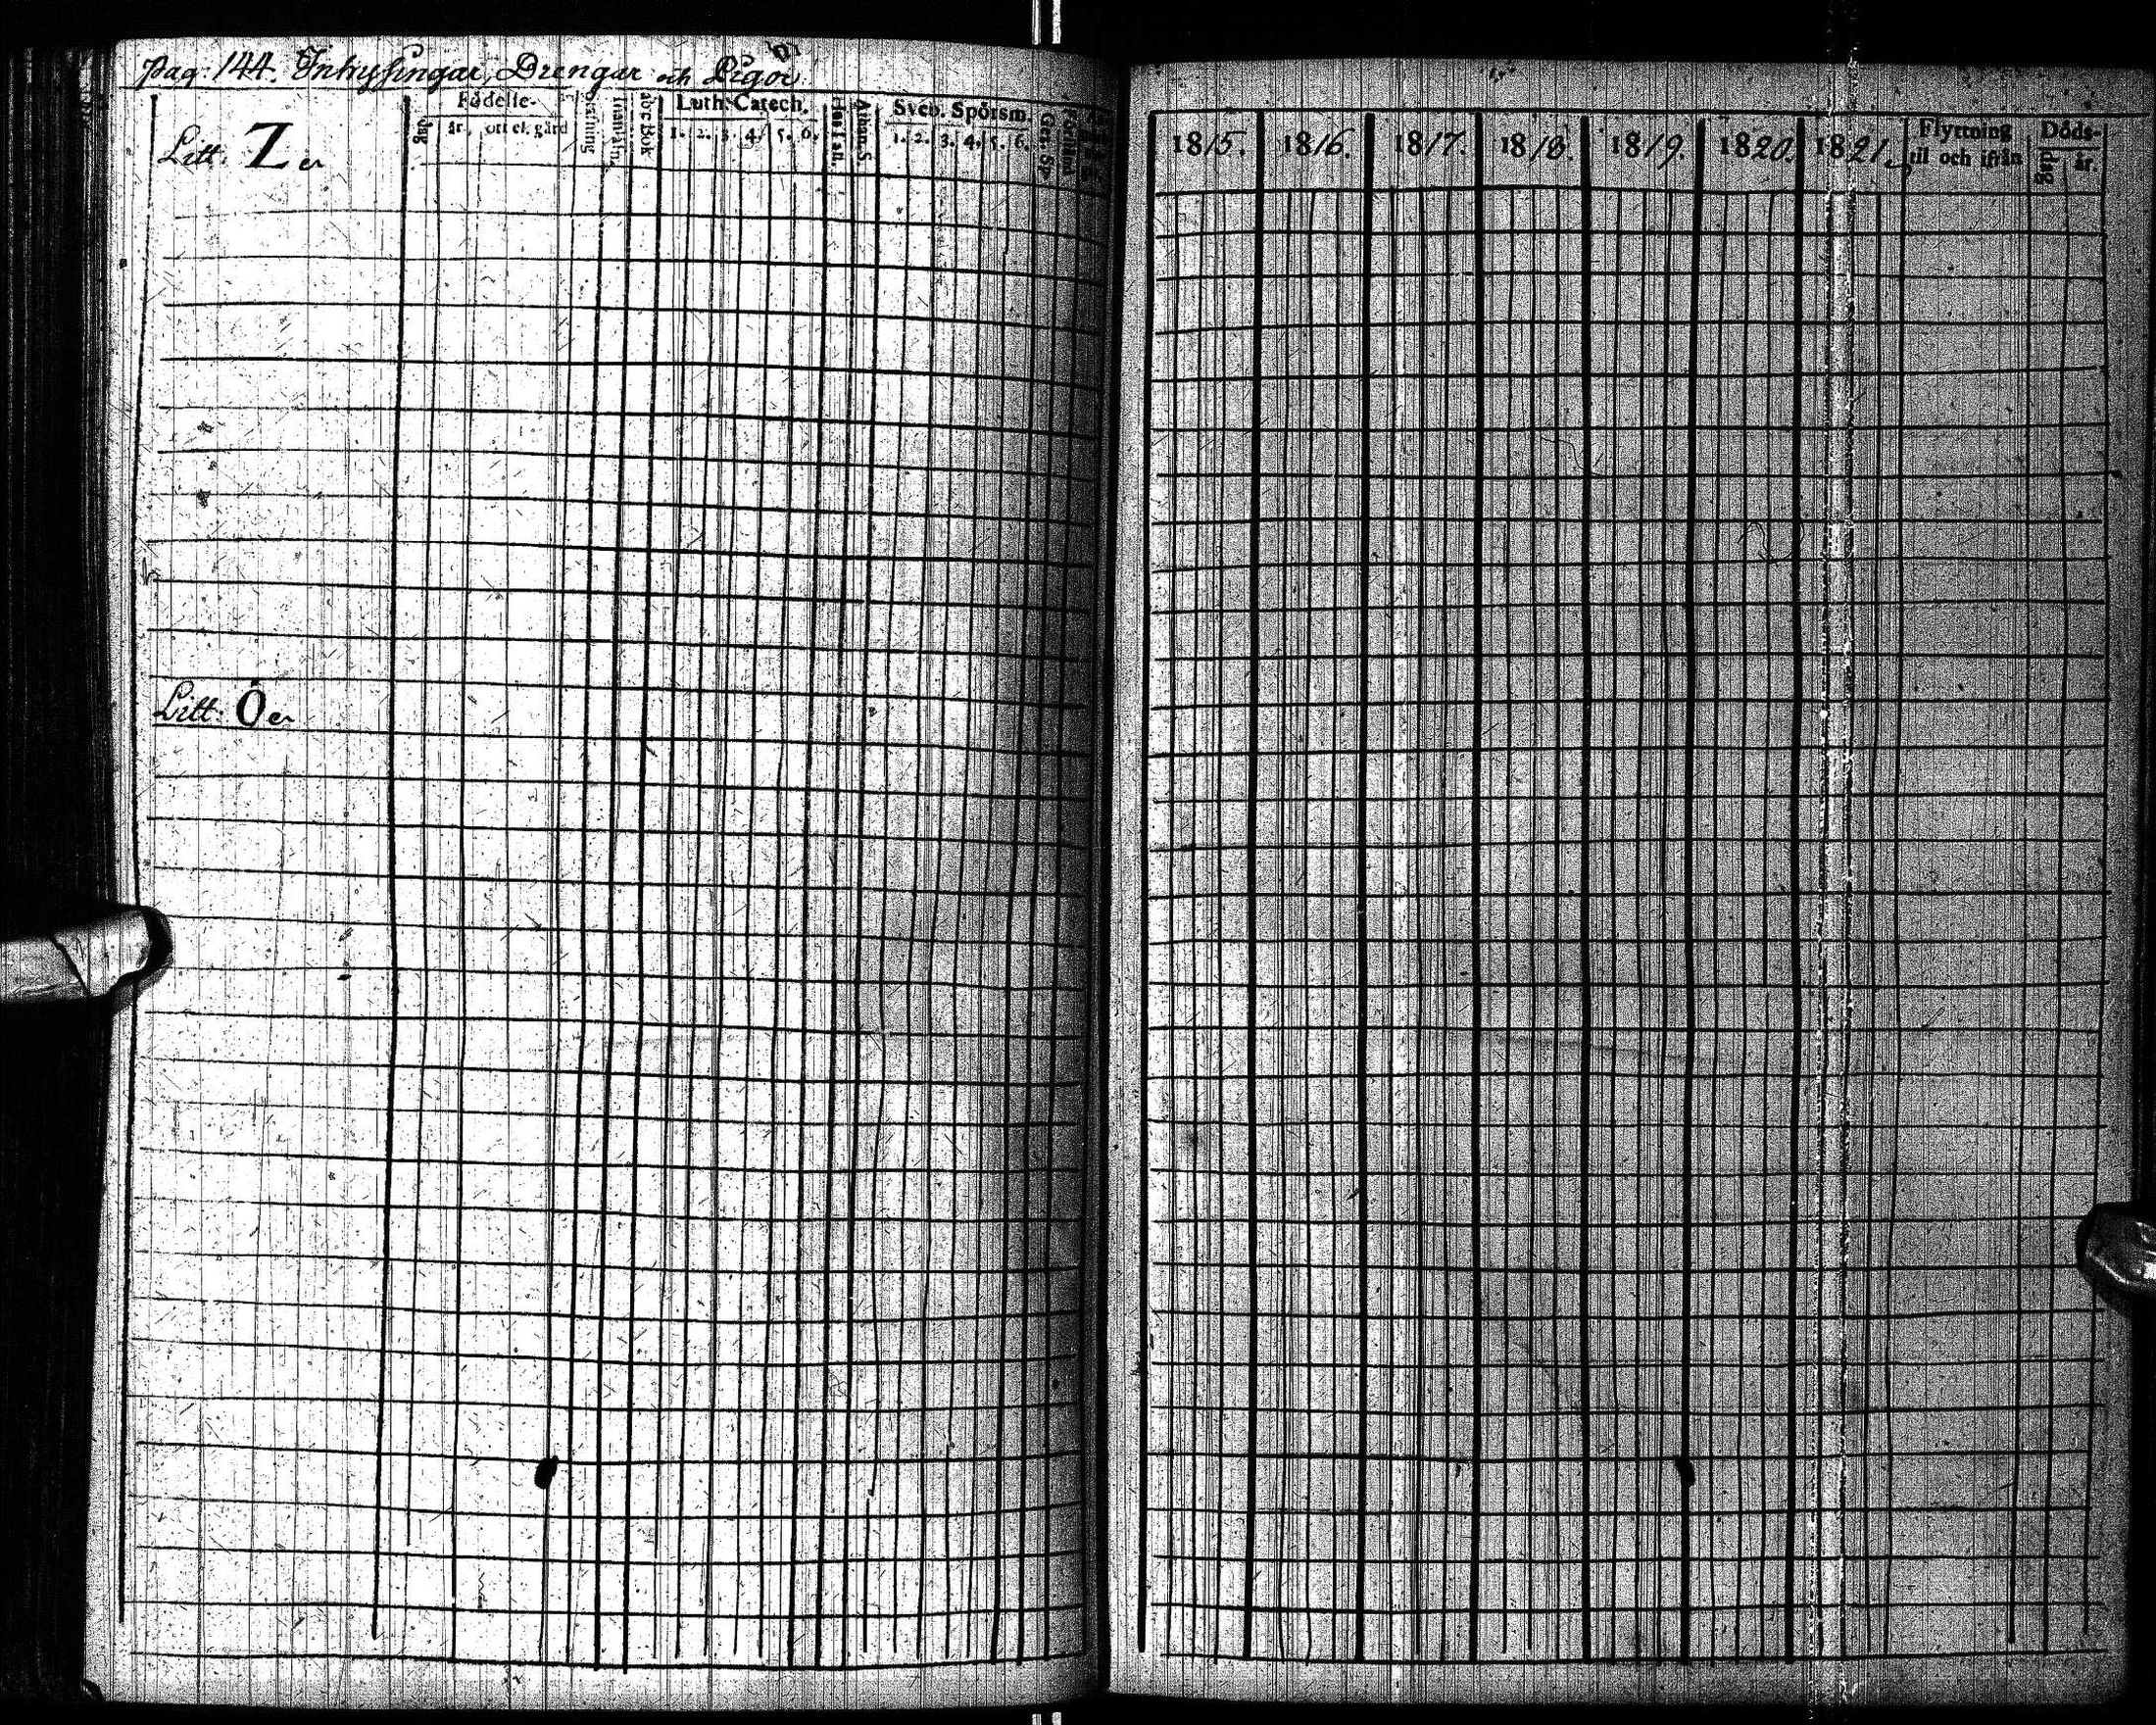 Pag: 144. Inhysingar, Drengar och Pigor
Födelse- Luth. Catech. Sveb. Spörsm.
dag år. ort el. gård Stafning Innanläsn. abc Bok 1. 2. 3. 4. 5. 6. Athan. S. 1. 2. 3. 4. 5. 6. Ger. Sp.
Litt. Z er
Litt: Ö er
1815. 1816. 1817. 1818. 1819. 1820. 1821. Flyttning Döds-
til och ifrån dag år.